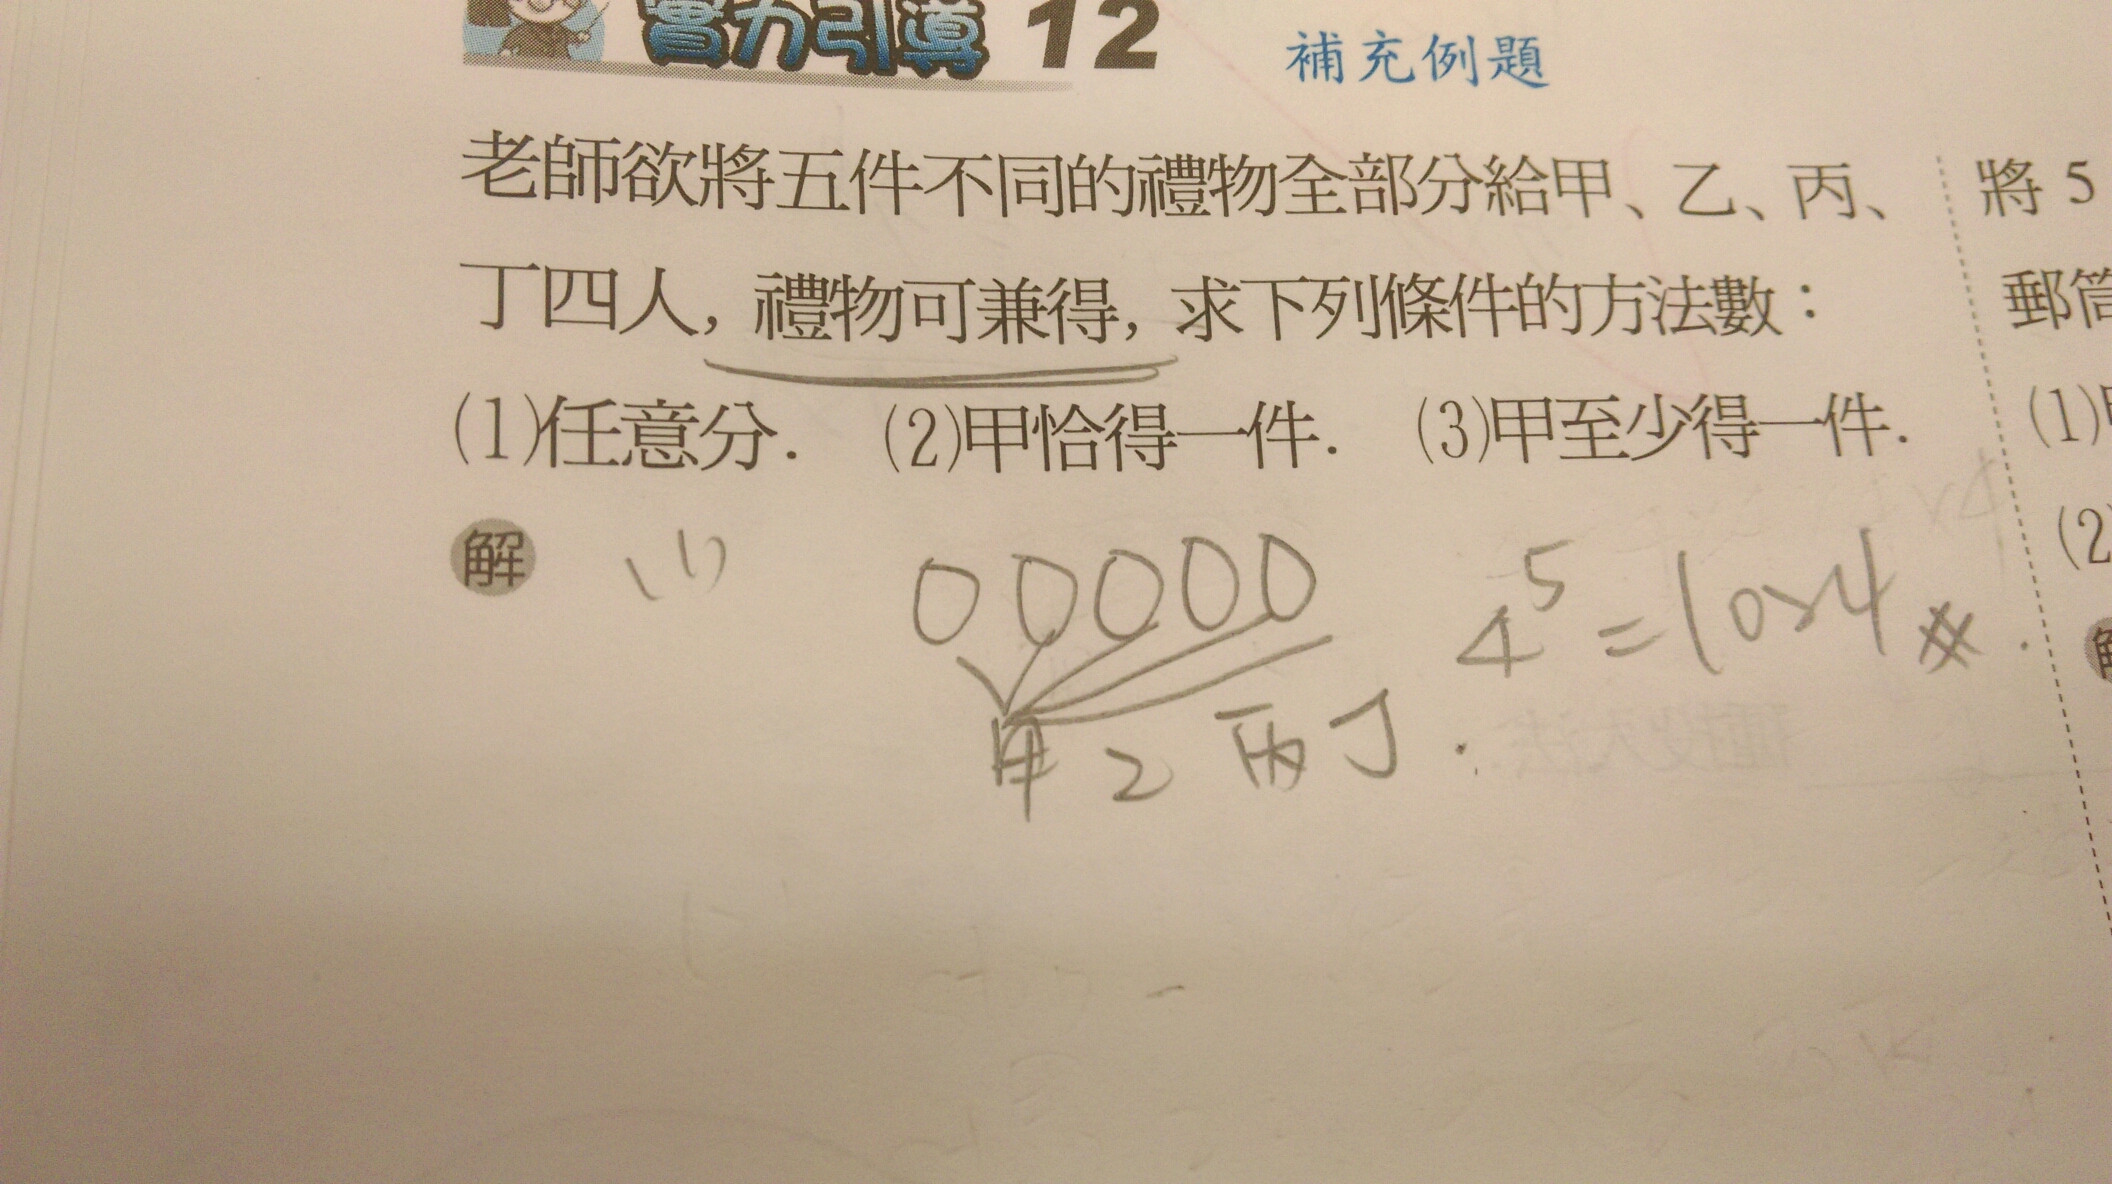 實力引導 12 補充例題
老師欲將五件不同的禮物全部分給甲、乙、丙、
丁四人，禮物可兼得，求下列條件的方法數：
(1)任意分． (2)甲恰得一件． (3)甲至少得一件．
解 (1) 00000 4⁵=1024 #.
甲 乙 丙 丁.
將 5
郵筒
(1)
(2)
解